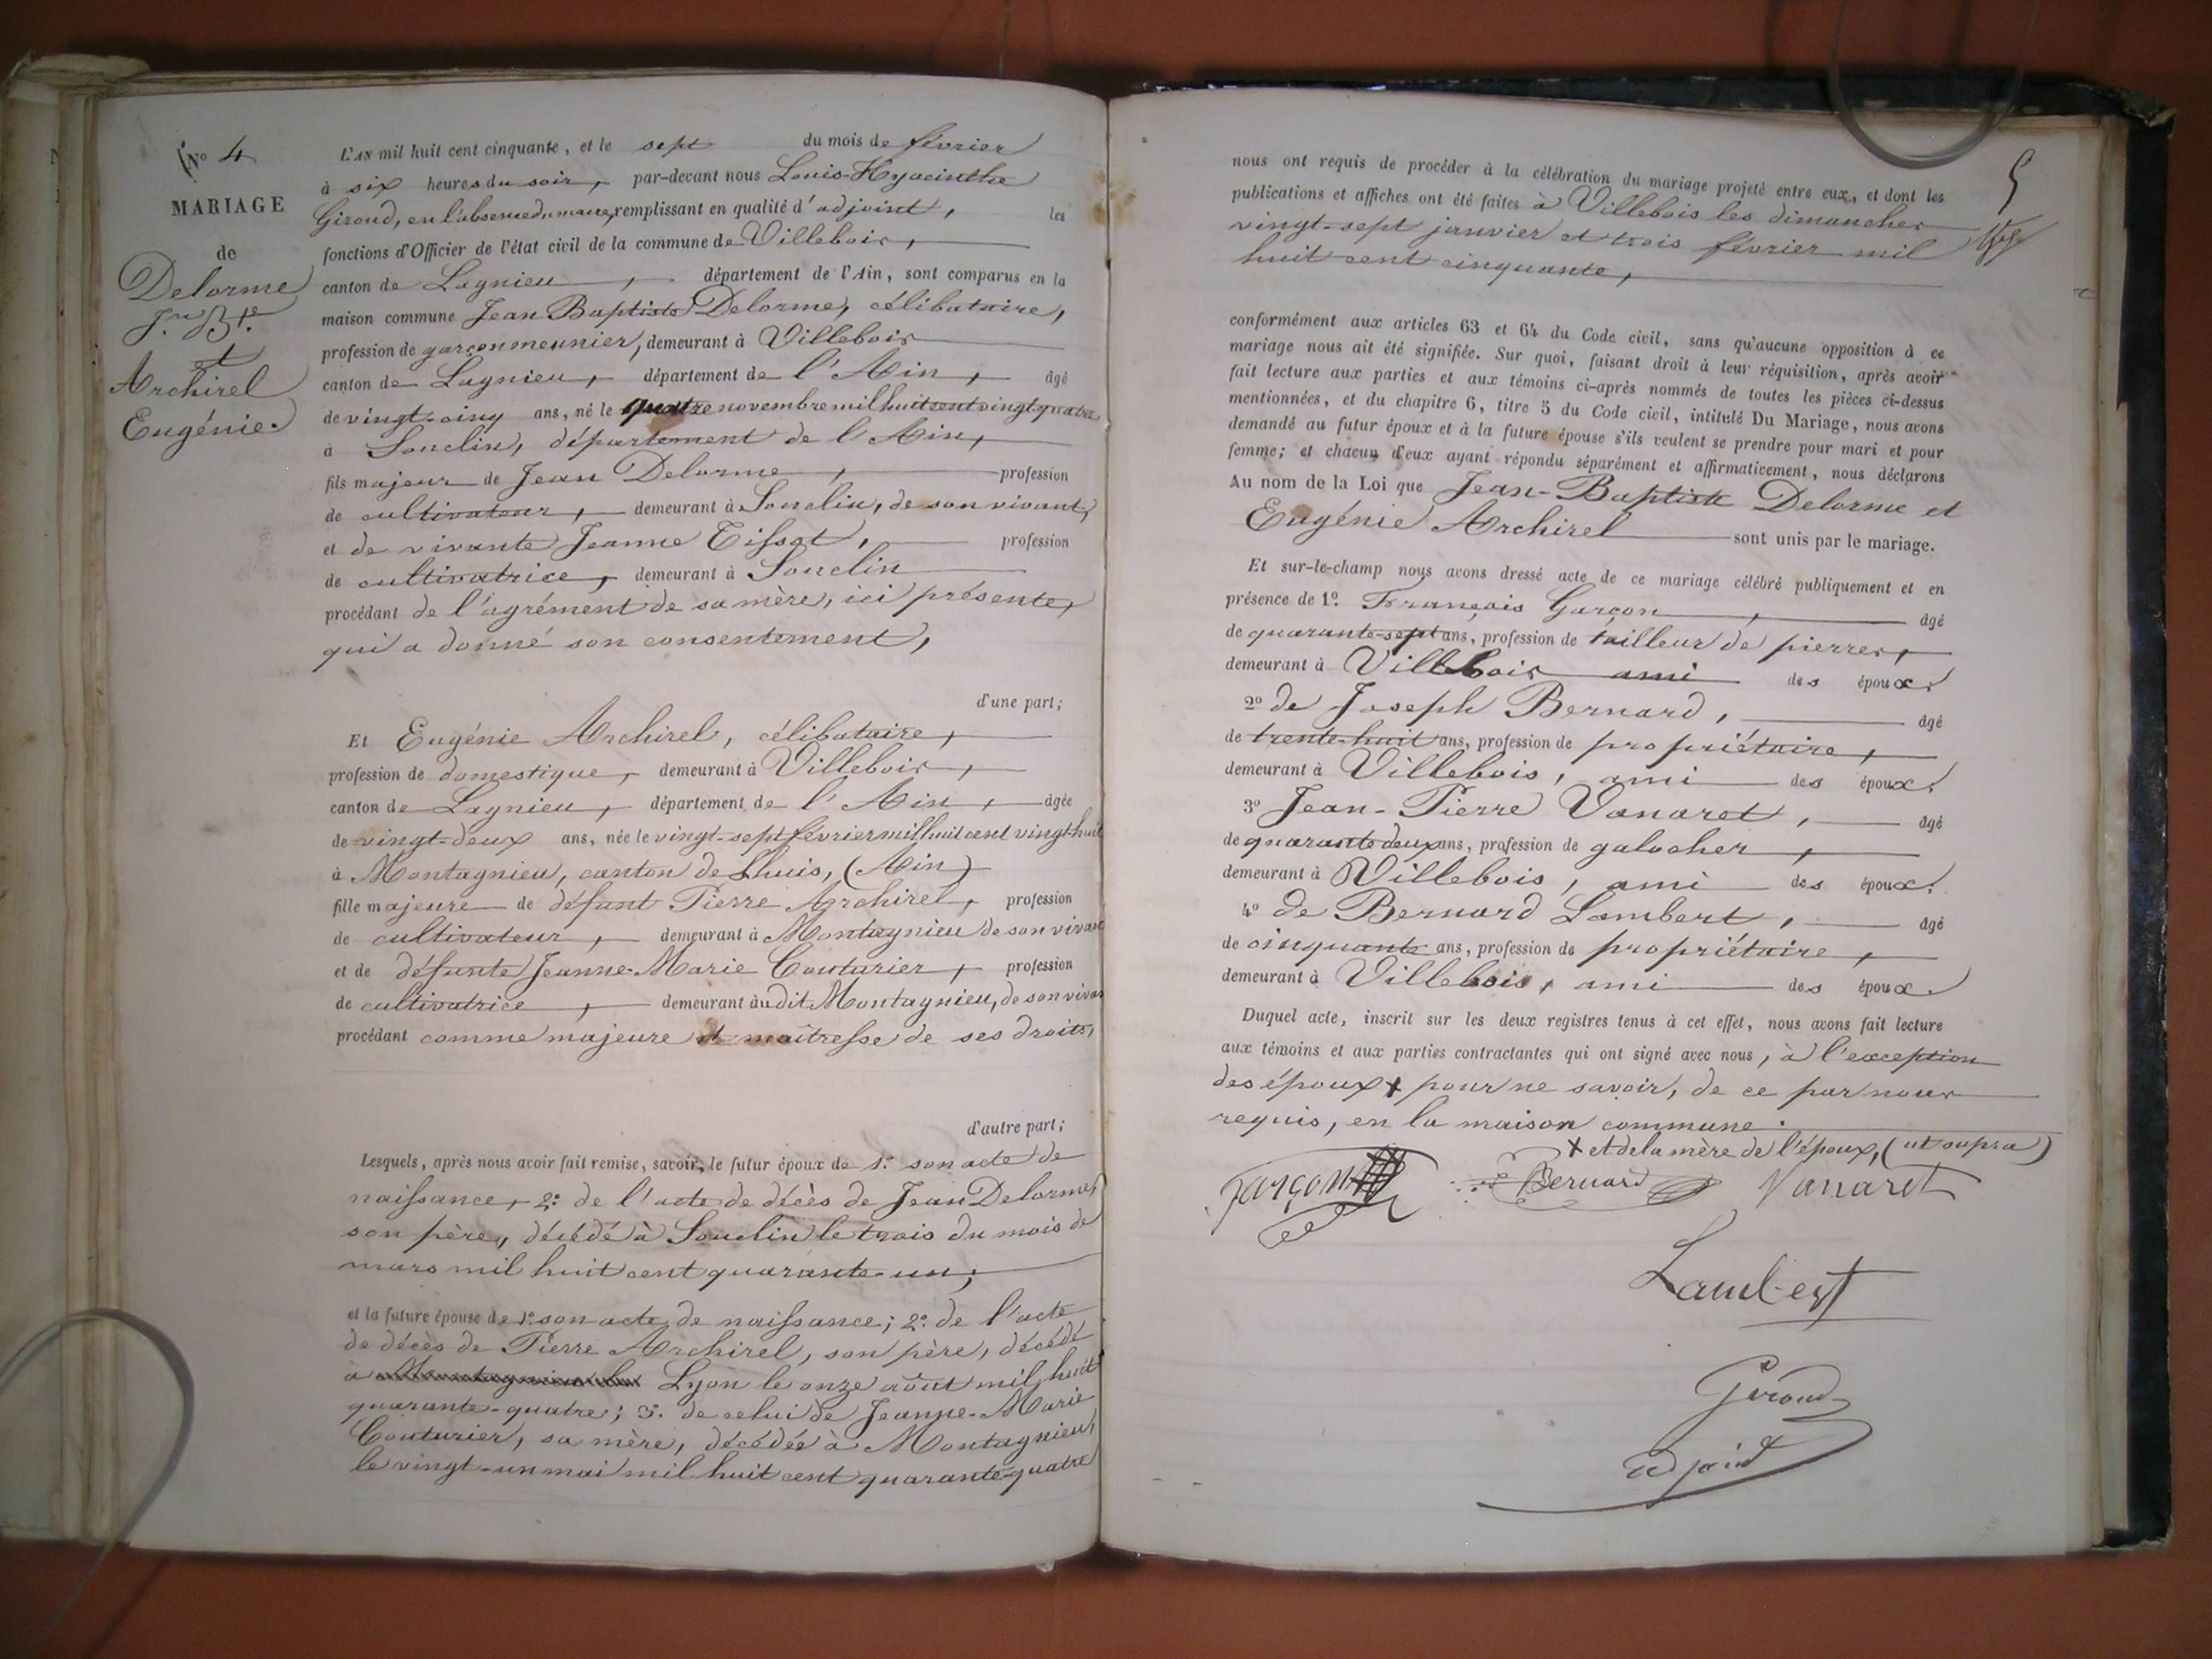 N° 4
MARIAGE
de
Delorme
J.n B.te
et
Archirel
Eugénie.
L'AN mil huit cent cinquante, et le sept du mois de février
à six heures du soir, par-devant nous Louis-Hyacinthe
Giroud, en l'absence du maire, remplissant en qualité d'adjoint, les
fonctions d'Officier de l'état civil de la commune de Villebois,
canton de Lagnieu, département de l'Ain, sont comparus en la
maison commune Jean Baptiste Delorme, célibataire,
profession de garçon meunier, demeurant à Villebois
canton de Lagnieu, département de l'Ain, âgé
de vingt-cinq ans, né le quatre novembre mil huit cent vingt quatre
à Souclin, département de l'Ain,
fils majeur de Jean Delorme, profession
de cultivateur, demeurant à Souclin, de son vivant,
et de vivante Jeanne Tissot, profession
de cultivatrice, demeurant à Souclin
procédant de l'agrément de sa mère, ici présente,
qui a donné son consentement,
d'une part;
Et Eugénie Archirel, célibataire,
profession de domestique, demeurant à Villebois,
canton de Lagnieu, département de l'Ain, âgée
de vingt-deux ans, née le vingt-sept février mil huit cent vingt-huit
à Montagnieu, canton de Lhuis, (Ain)
fille majeure de défunt Pierre Archirel, profession
de cultivateur, demeurant à Montagnieu de son vivant
et de défunte Jeanne-Marie Couturier, profession
de cultivatrice, demeurant audit Montagnieu, de son vivan
procédant comme majeure et maîtresse de ses droits,
d'autre part;
Lesquels, après nous avoir fait remise, savoir, le futur époux de 1.° son acte de
naissance, 2.° de l'acte de décès de Jean Delorme,
son père, décédé à Souclin le trois du mois de
mars mil huit cent quarante-un;
et la future épouse de 1.° son acte de naissance; 2.° de l'acte
de décès de Pierre Archirel, son père, décédé
à Lyon le onze août mil huit
quarante-quatre; 3.° de celui de Jeanne-Marie
Couturier, sa mère, décédée à Montagnieu,
le vingt-un mai mil huit cent quarante-quatre
5
nous ont requis de procéder à la célébration du mariage projeté entre eux, et dont les
publications et affiches ont été faites à Villebois les dimanches
vingt-sept janvier et trois février mil
huit cent cinquante,
conformément aux articles 63 et 64 du Code civil, sans qu'aucune opposition à ce
mariage nous ait été signifiée. Sur quoi, faisant droit à leur réquisition, après avoir
fait lecture aux parties et aux témoins ci-après nommés de toutes les pièces ci-dessus
mentionnées, et du chapitre 6, titre 5 du Code civil, intitulé Du Mariage, nous avons
demandé au futur époux et à la future épouse s'ils veulent se prendre pour mari et pour
femme; et chacun d'eux ayant répondu séparément et affirmativement, nous déclarons
Au nom de la Loi que Jean-Baptiste Delorme et
Eugénie Archirel sont unis par le mariage.
Et sur-le-champ nous avons dressé acte de ce mariage célébré publiquement et en
présence de 1°. François Garçon, âgé
de quarante-sept ans, profession de tailleur de pierres,
demeurant à Villebois ami des époux,
2° de Joseph Bernard, âgé
de trente-huit ans, profession de propriétaire,
demeurant à Villebois, ami des époux.
3° Jean-Pierre Vanaret, âgé
de quarante deux ans, profession de galocher,
demeurant à Villebois, ami des époux.
4° de Bernard Lambert, âgé
de cinquante ans, profession de propriétaire,
demeurant à Villebois, ami des époux.
Duquel acte, inscrit sur les deux registres tenus à cet effet, nous avons fait lecture
aux témoins et aux parties contractantes qui ont signé avec nous, à l'exception
des époux x pour ne savoir, de ce par nous
requis, en la maison commune.
x et de la mère de l'époux, (ut supra)
garçon Bernard Vanaret
Lambert
Giroud
adjoint